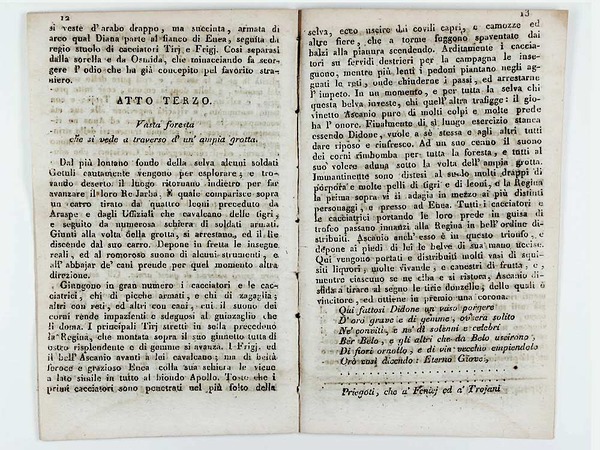 12
si veste d'arabo drappo, ma succinta, armata di
arco qual Diana parte al fianco di Enea, seguita da
regio stuolo di cacciatori Tirj e Frigj. Così separasi
dalla sorella e da Osmida, che minacciando fa scor-
gere l'odio che ha già concepito pel favorito stra-
niero.
ATTO TERZO.
Vasta foresta
che si vede a traverso d'un' ampia grotta.
Dal più lontano fondo della selva alcuni soldati
Getuli cautamente vengono per esplorare; e tro-
vando deserto il luogo ritornano indietro per far
avanzare il loro Re Jarba, il quale comparisce sopra
un carro tirato da quattro leoni preceduto da
Araspe e dagli Uffiziali che cavalcano delle tigri,
e seguito da numerosa schiera di soldati armati.
Giunti alla volta della grotta, si arrestano, ed il Re
discende dal suo carro. Depone in fretta le insegne
reali, ed al romoroso suono di alcuni stromenti, e
all'abbajar de' cani prende per quel momento altra
direzione.
Giungono in gran numero i cacciatori e le cac-
ciatrici, chi di picche armati, e chi di zagaglia;
altri con reti, ed altri con cani, cui il suono dei
corni rende impazienti e sdegnosi al guinzaglio che
li doma. I principali Tirj stretti in folla precedono
la Regina, che montata sopra il suo giannetto tutta di
ostro risplendente e di gemme si avanza. I Frigj, ed
il bell'Ascanio avanti a lei cavalcano; ma di beltà
feroce e grazioso Enea colla sua schiera le viene
a lato simile in tutto al biondo Apollo. Tosto che i
primi cacciatori sono penetrati nel più folto della
13
selva, ecco uscire dai covili capri, e camozze ed
altre fiere, che a torme fuggono spaventate dai
balzi alla pianura scendendo. Arditamente i caccia-
tori su fervidi destrieri per la campagna le inse-
guono, mentre più lenti i pedoni piantano negli ag-
guati le reti, onde chiudere i passi, ed arrestarne
l'impeto. In un momento, e per tutta la selva chi
questa belva investe, chi quell'altra trafigge: il gio-
vinetto Ascanio pure di molti colpi e molte prede
ha l'onore. Finalmente di sì lungo esercizio stanca
essendo Didone, vuole a sè stessa e agli altri tutti
dare riposo e rinfresco. Ad un suo cenno il suono
dei corni rimbomba per tutta la foresta, e tutti al
suo volere aduna sotto la volta dell'ampia grotta.
Immantinente sono distesi al suolo molti drappi di
porpora e molte pelli di tigri e di leoni, e la Regina
la prima sopra vi si adagia in mezzo ai più distinti
personaggi, e presso ad Enea. Tutti i cacciatori e
le cacciatrici portando le loro prede in guisa di
trofeo passano innanzi alla Regina in bell'ordine di-
stribuiti. Ascanio anch'esso è in questo trionfo, e
depone ai piedi di lei le belve di sua mano uccise.
Qui vengono portati e distribuiti molti vasi di squi-
siti liquori, molte vivande, e canestri di frutta, e,
mentre ciascuno se ne ciba e si ristora, Ascanio di-
sfida a tirare al segno le tirie donzelle, delle quali è
vincitore, ed ottiene in premio una corona.
Qui fattosi Didone un vaso porgere
D'oro grave e di gemme, ov'era solito
Ne' conviti, e ne' dì solenni e celebri
Ber Belo, e gli altri che da Belo uscirono,
Di fiori ornollo, e di vin vecchio empiendolo
Orò così dicendo: Eterno Giove,
. . . . . . . . . . . . . . . . . . . .
Priegoti, che a' Fenicj ed a' Trojani